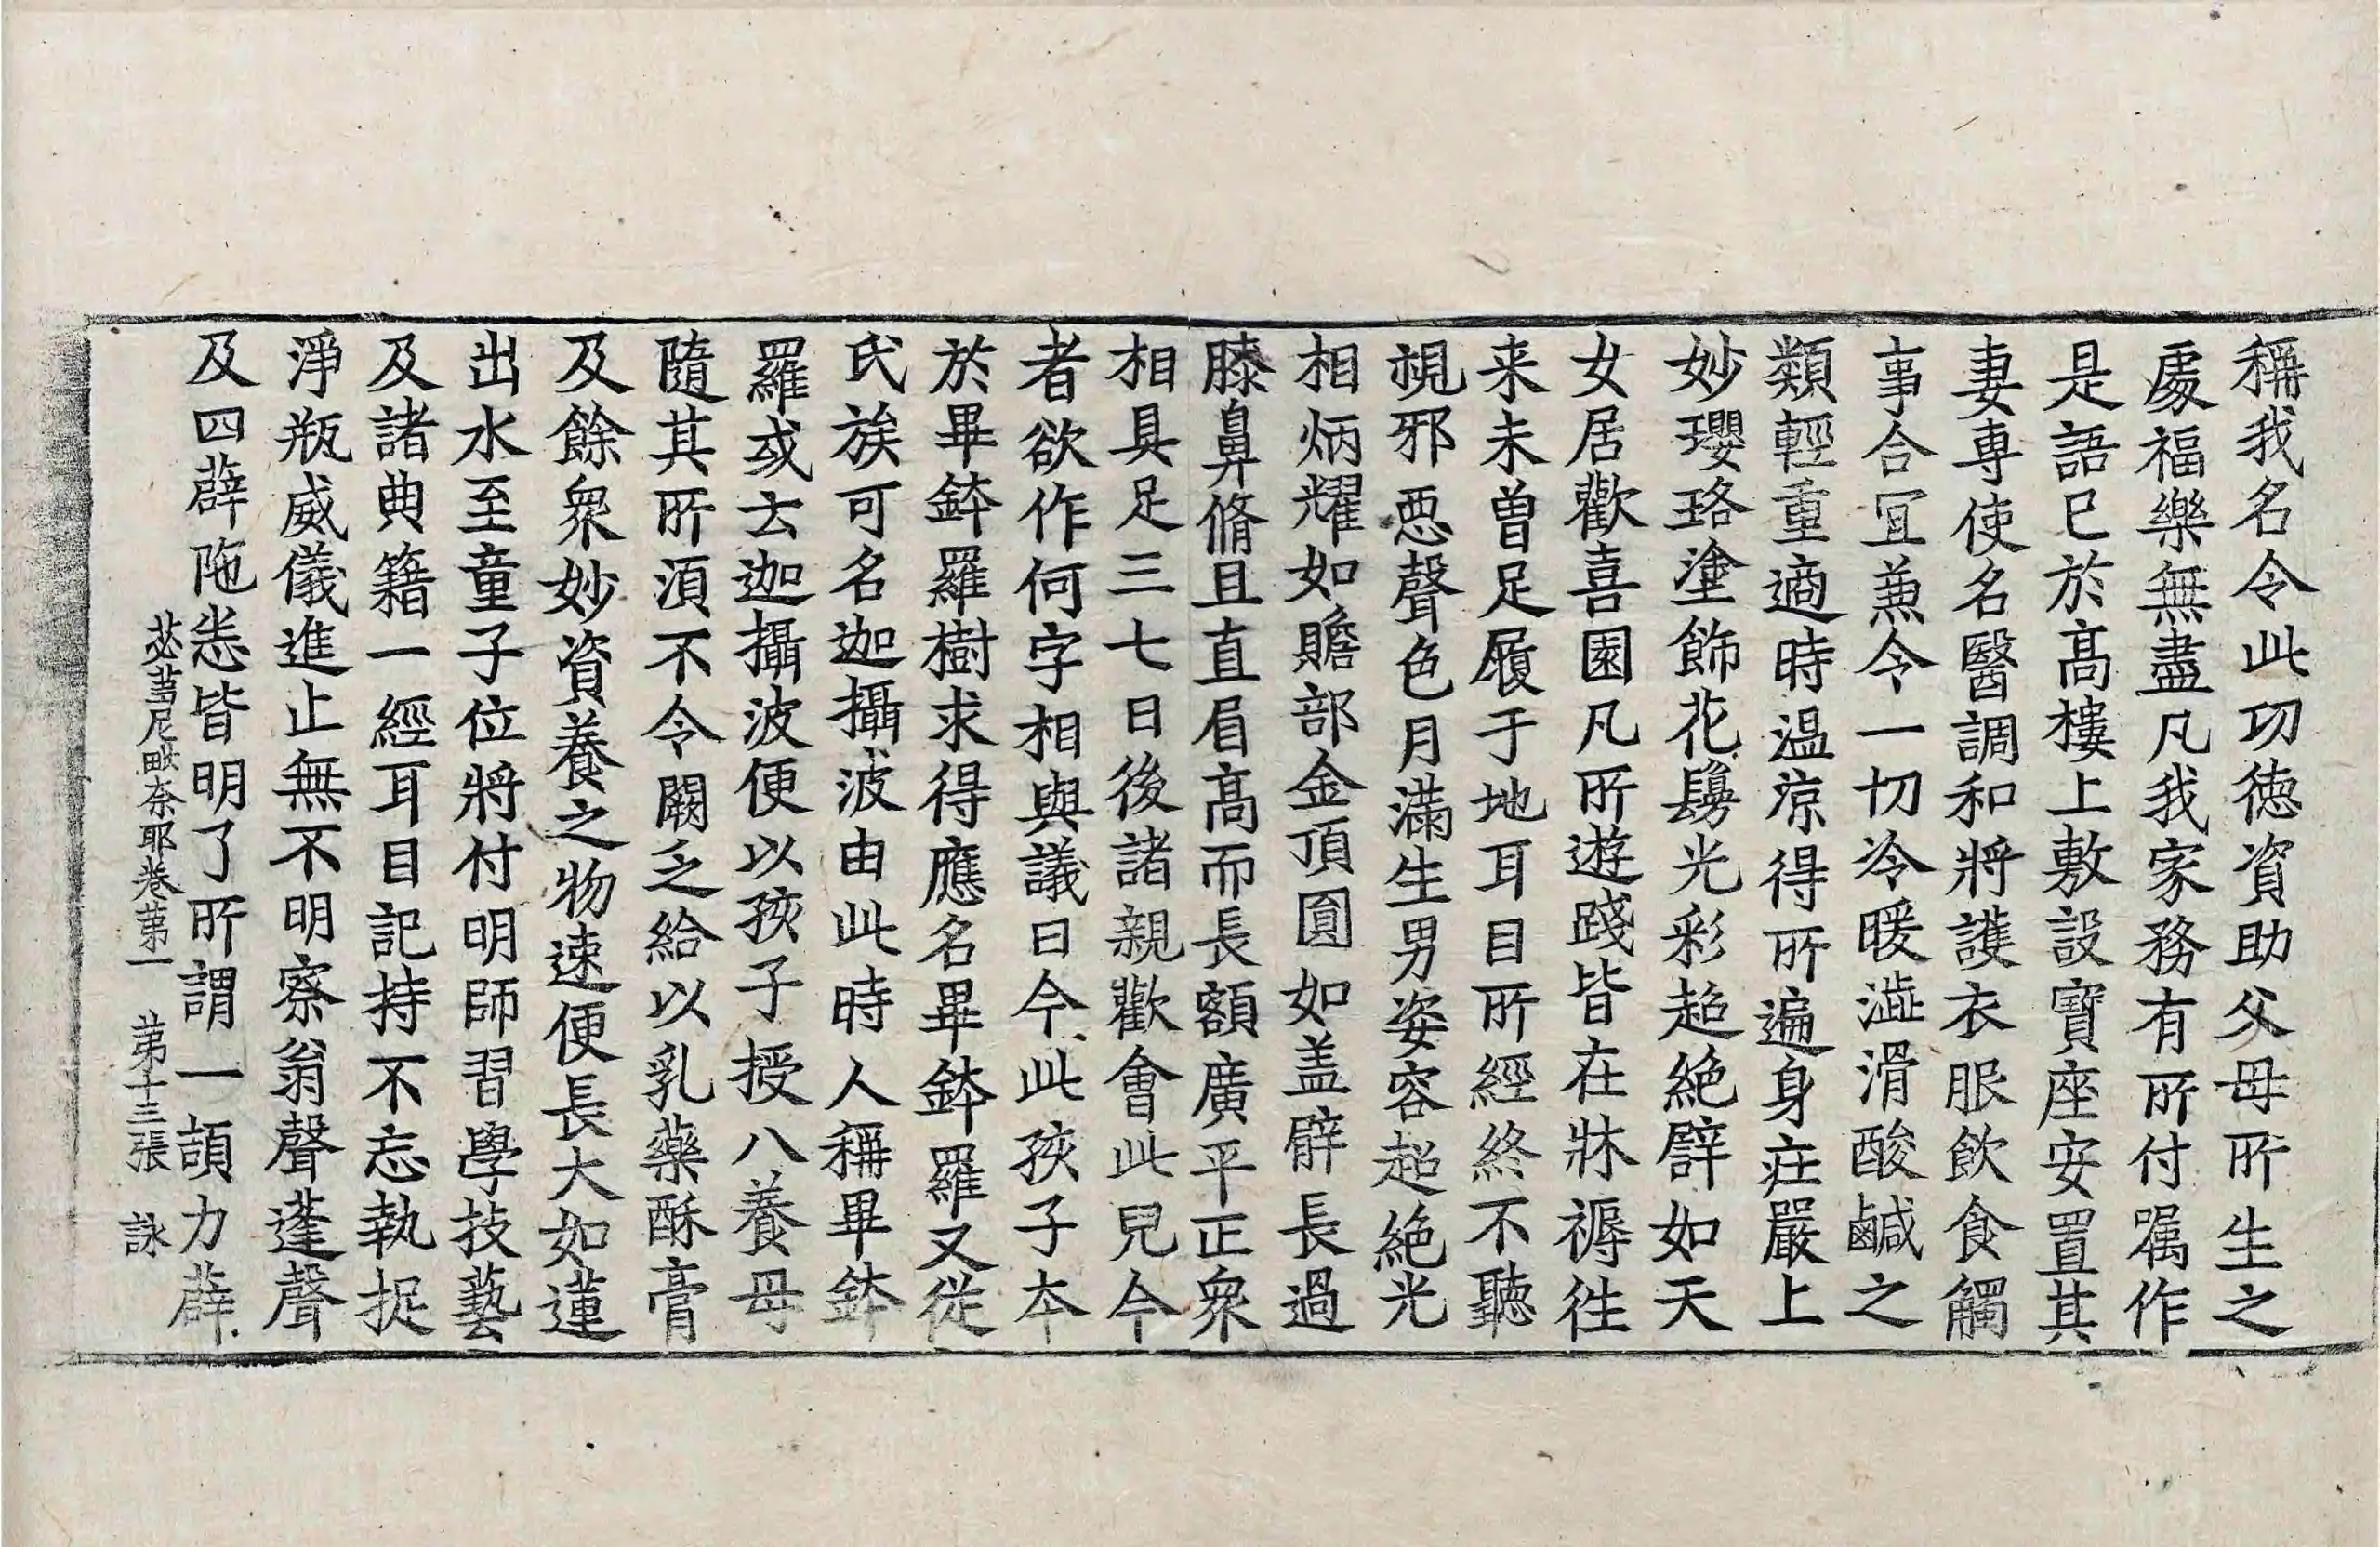 稱我名令此功德資助父母所生之
處福樂無盡凡我家務有所付囑作
是語已於高樓上敷設寶座安置其
妻專使名醫調和將護衣服飲食觸
事合冝兼令一切冷暖澁滑酸鹹之
類輕重適時温涼得所遍身莊嚴上
妙瓔珞塗飾花鬘光彩超絶譬如天
女居歡喜園凡所遊踐皆在牀褥徃
来未曾足履于地耳目所經終不聽
視邪惡聲色月滿生男姿容超絶光
相炳耀如贍部金頂圓如盖臂長過
膝鼻脩且直眉高而長額廣平正衆
相具足三七日後諸親歡會此兒今
者欲作何字相與議曰今此孩子本
於畢鉢羅樹求得應名畢鉢羅又從
氏族可名迦攝波由此時人稱畢鉢
羅或云迦攝波便以孩子授八養母
隨其所須不令闕乏給以乳藥酥膏
及餘衆妙資養之物速便長大如蓮
出水至童子位將付明師習學技藝
及諸典籍一經耳目記持不忘執捉
淨瓶威儀進止無不明察翁聲蓬聲
及四薜陁悉皆明了所謂一頡力薜
苾芻尼毗奈耶卷第一　第十三張　詠